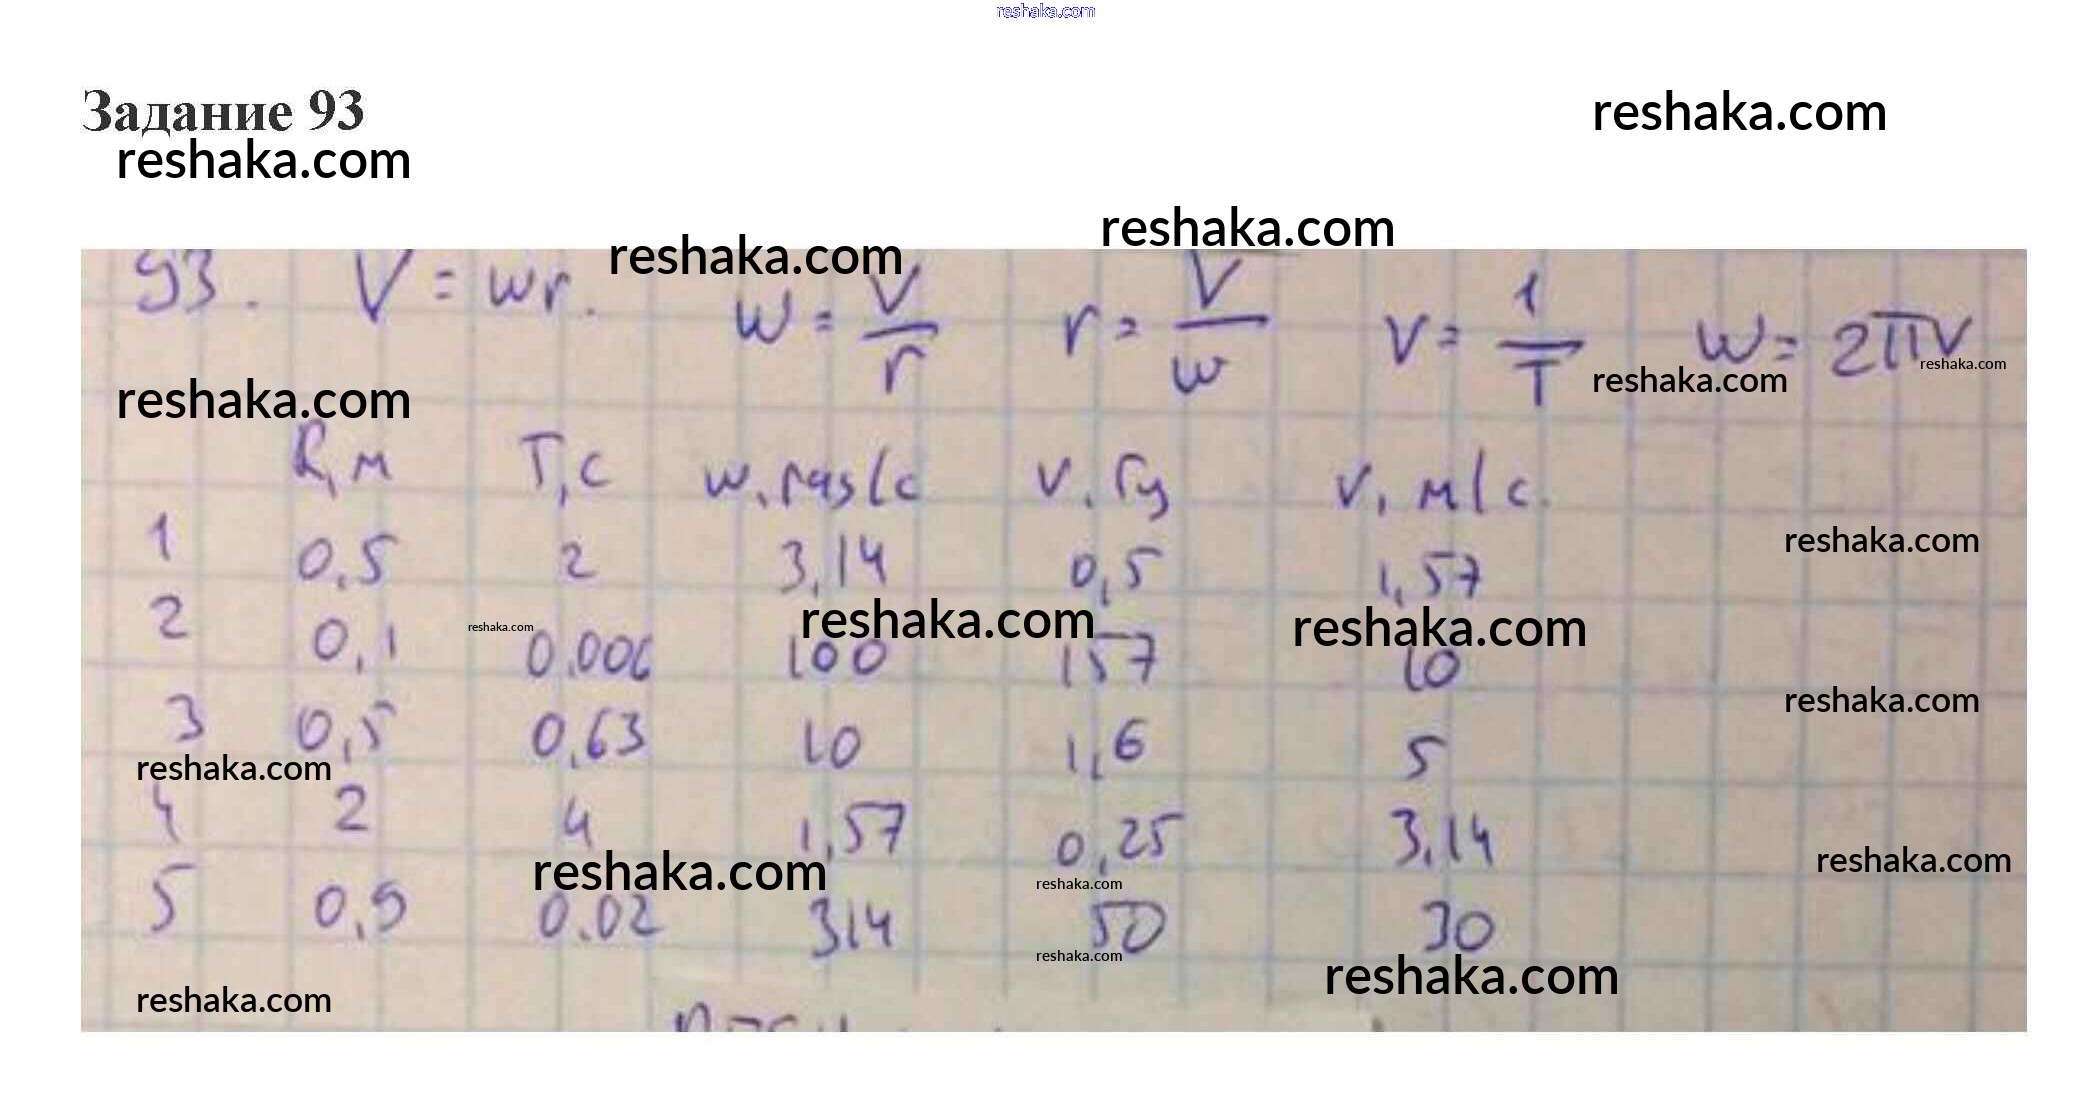 reshaka.com
Задание 93
reshaka.com
reshaka.com
reshaka.com
reshaka.com
93. V = wr. w = V/r r = V/w ν = 1/T w = 2πν
reshaka.com
reshaka.com
reshaka.com
R, м T, с w, рад/с ν, Гц V, м/с
1 0,5 2 3,14 0,5 1,57
reshaka.com
2 0,1 0.006 100 157 10
reshaka.com
reshaka.com
reshaka.com
3 0,5 0,63 10 1,6 5
reshaka.com
reshaka.com
4 2 4 1,57 0,25 3,14
reshaka.com
reshaka.com
reshaka.com
5 0,9 0.02 314 50 30
reshaka.com
reshaka.com
reshaka.com